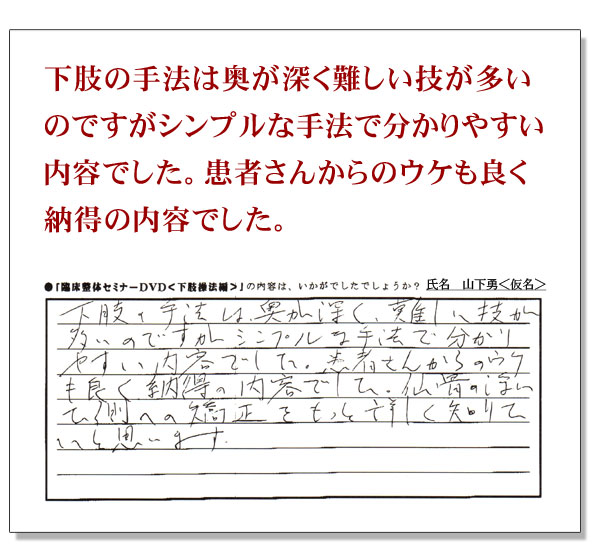 下肢の手法は奥が深く難しい技が多い
のですがシンプルな手法で分かりやすい
内容でした。患者さんからのウケも良く
納得の内容でした。
●「臨床整体セミナーDVD＜下肢操法編＞」の内容は、いかがでしたでしょうか？ 氏名 山下勇＜仮名＞
下肢の手法は、奥が深く、難しい技が
多いのですが シンプルな手法で分かり
やすい内容でした。患者さんからのウケ
も良く納得の内容でした。仙骨の浮いて
いる側への矯正をもっと詳しく知りた
いと思います。